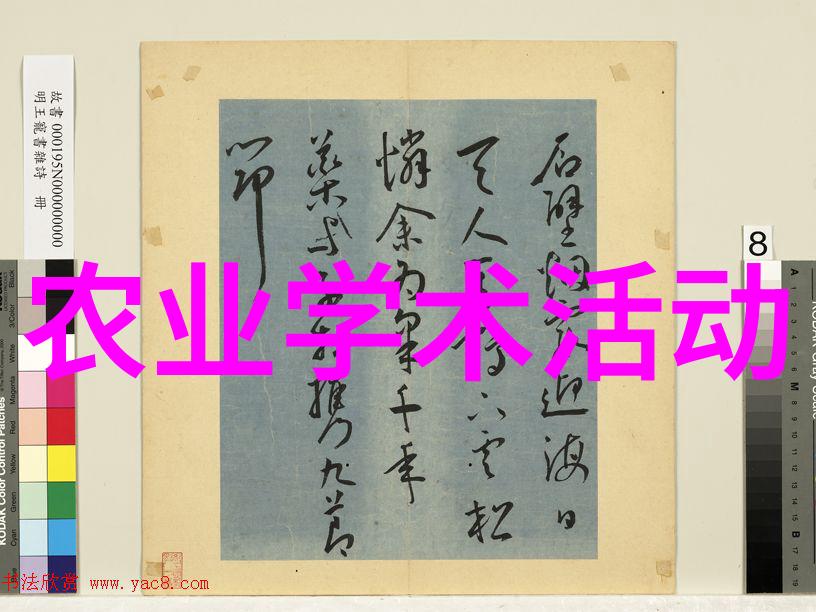 故書 000195N000000000
明王寵書雜詩 冊
農业学术活动
石壁烟迎海日
天人下雲松
憐余千年
藥九節
筇
8
A
1
2
3
4
5
6
M
8
9
10
11
12
13
14
15
B
17
18
19
Black
3/Color
White
Magenta
Red
Yellow
Green
Cyan
KODAK Color Control Patches
书法欣赏 www.yac8.com